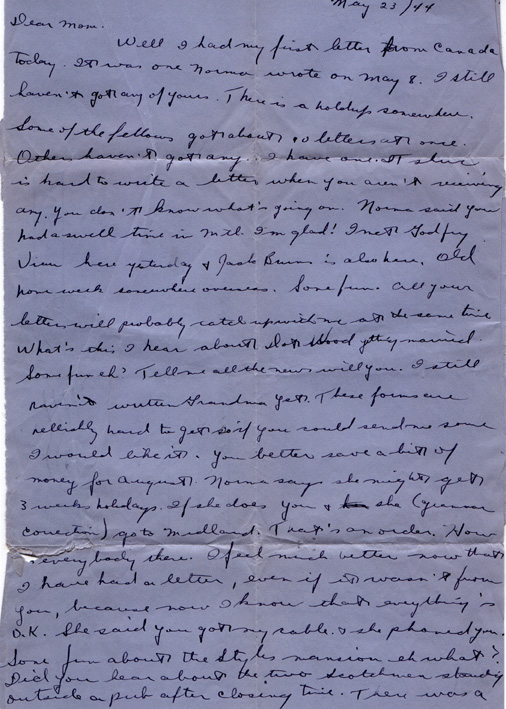 May 23/44
Dear Mom.
Well I had my first letter from Canada
today. It was one Norma wrote on May 8. I still
haven't got any of yours. There is a holdup somewhere.
Some of the fellows got about 10 letters at once.
Other haven't got any. I have one. It sure
is hard to write a letter when you aren't receiving
any. You don't know what's going on. Norma said you
had a swell time in Mtl. I'm glad! I met Godfry
here yesterday & Jack Burns is also here. Old
home week somewhere overseas. Some fun. All your
letters will probably catch up with me at the same time
What's this I hear about Dot Wood getting married.
Some fun eh? Tell me all the news will you. I still
haven't written Grandma yet. These forms are
hard to get so if you could send me some
I would like it. You better save a bit of
money for August. Norma says she might get
3 weeks holidays. If she does you & she (grammar
correction) go to Midland. That's an order. How
everybody there. I feel much better now that
I have had a letter, even if it wasn't from
you, because now I know that everything's
O.K. She said you got my cable & she phoned you.
Some fun about the Styles mansion eh what?
Did you hear about the two Scotchmen standing
outside a pub after closing time. There was a